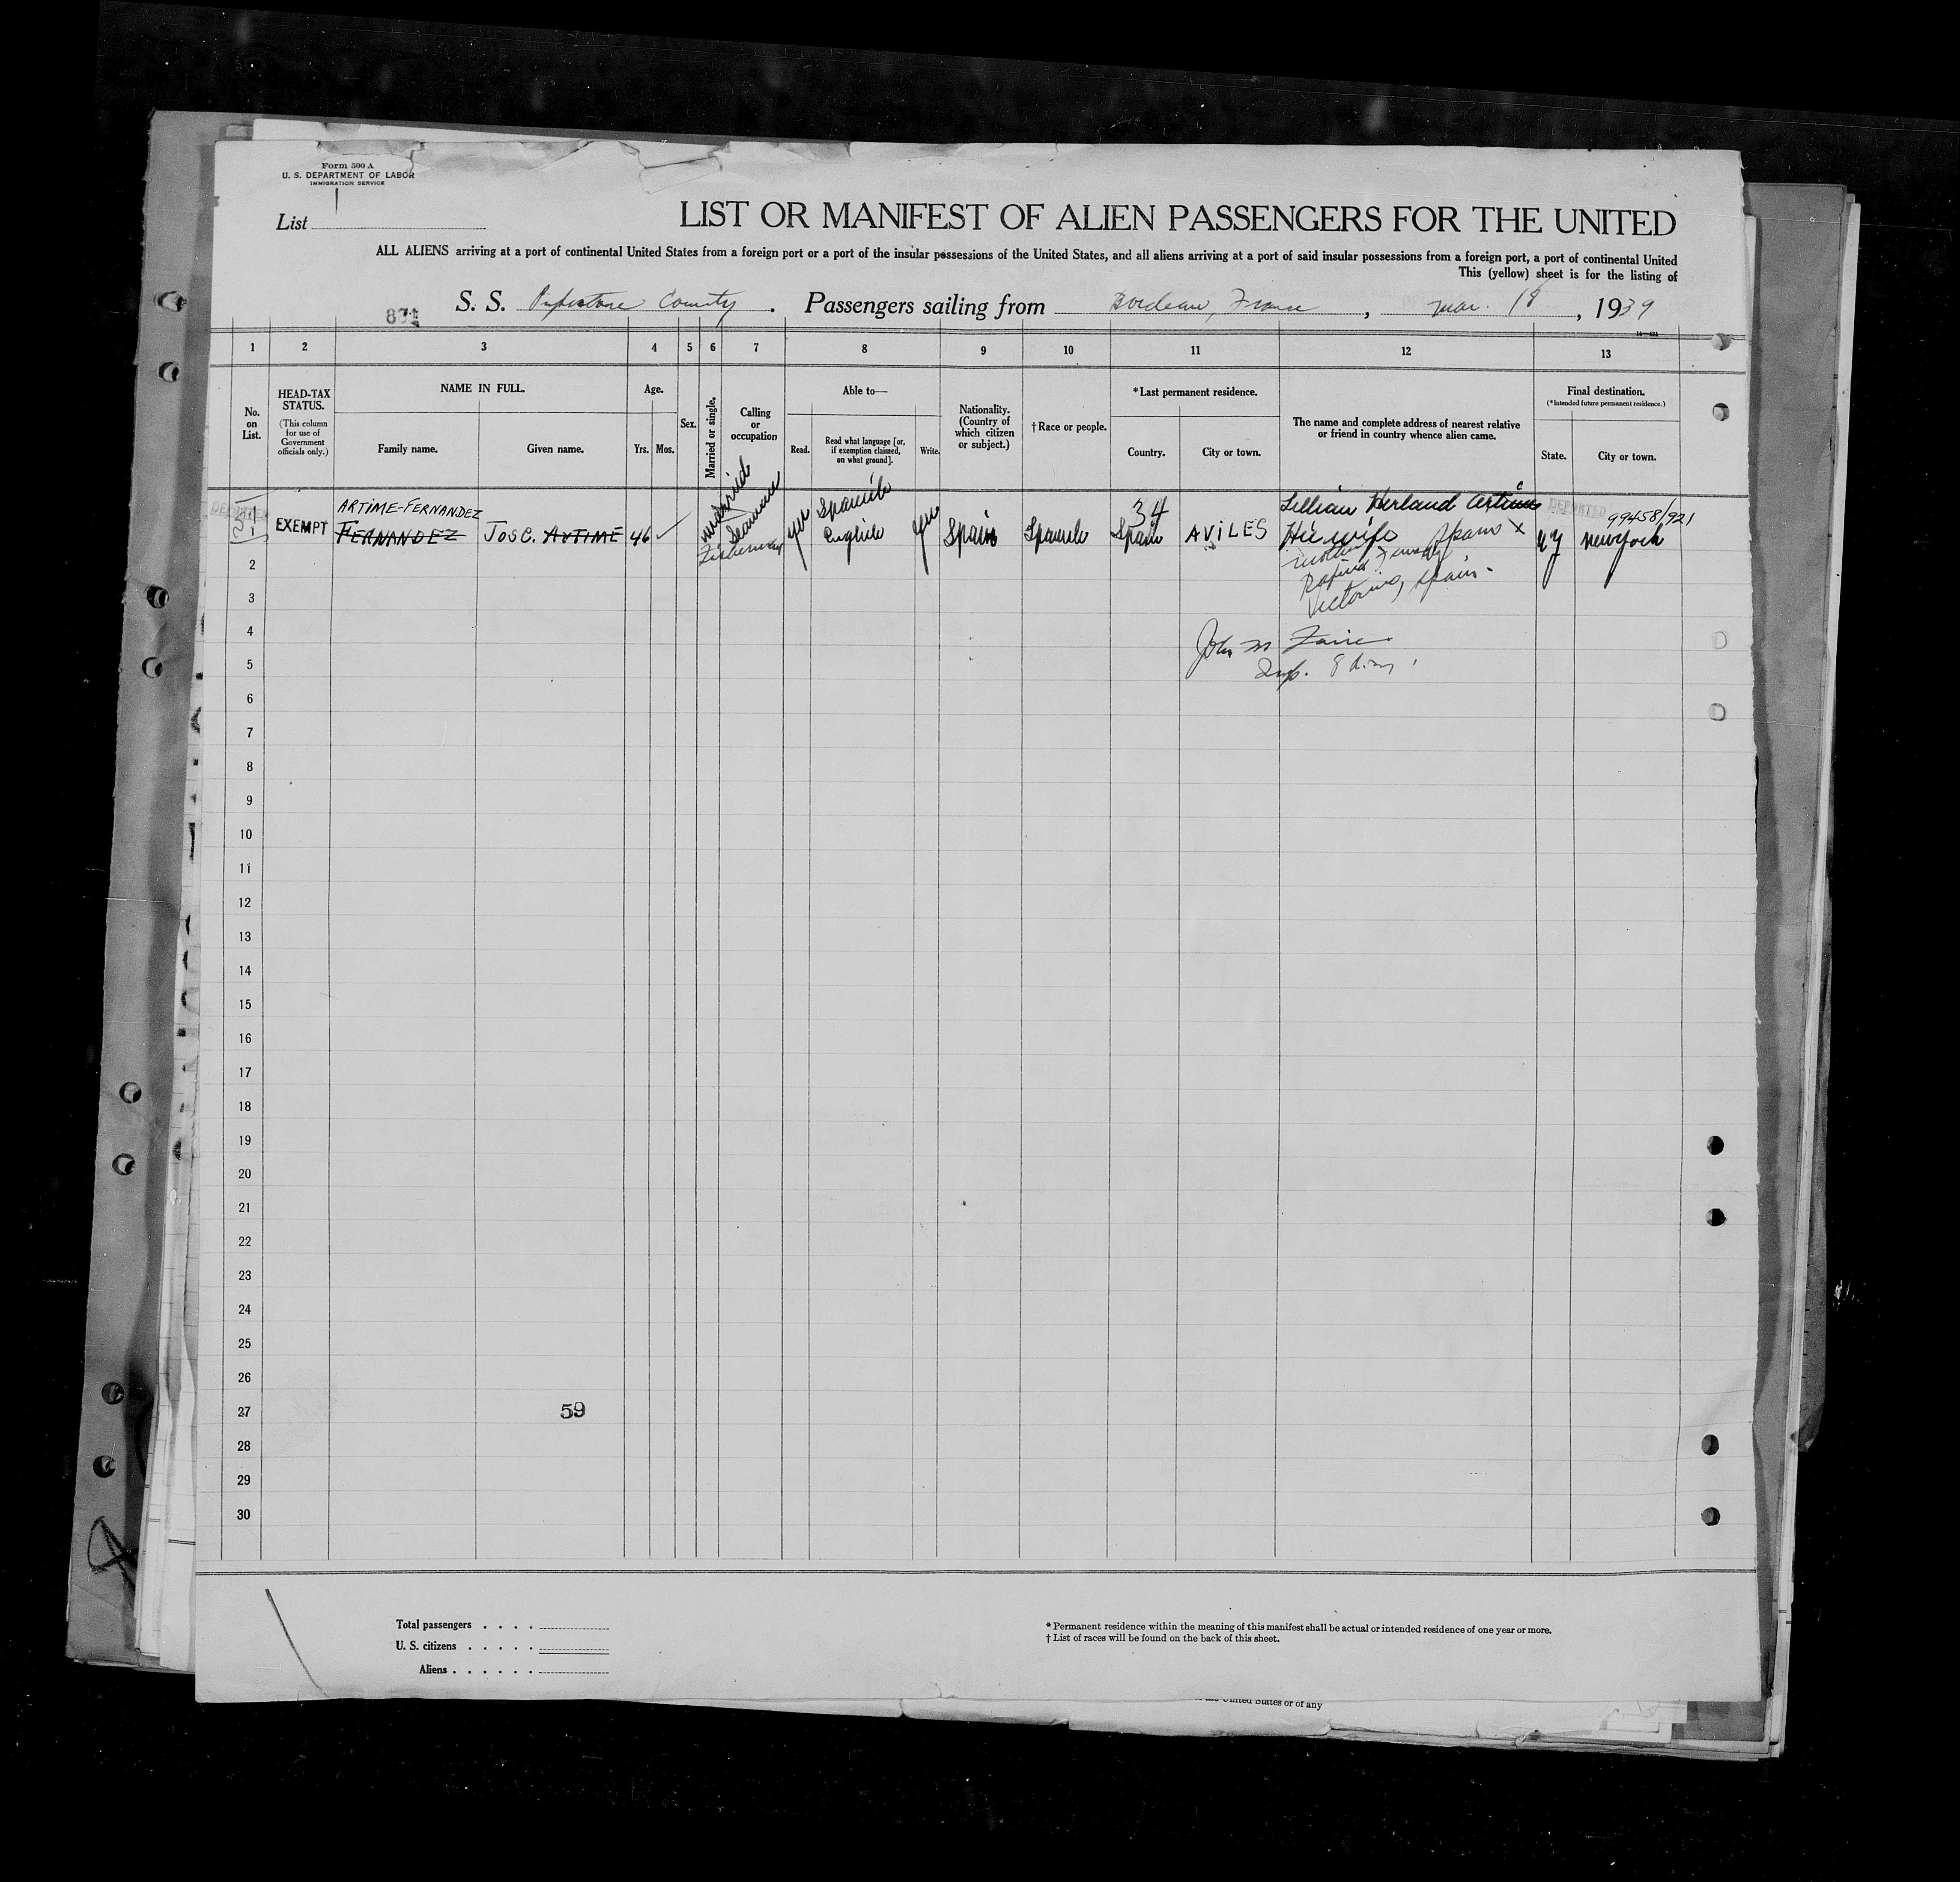 Form 500 A
U. S. DEPARTMENT OF LABOR
IMMIGRATION SERVICE
List
LIST OR MANIFEST OF ALIEN PASSENGERS FOR THE UNITED
ALL ALIENS arriving at a port of continental United States from a foreign port or a port of the insular possessions of the United States, and all aliens arriving at a port of said insular possessions from a foreign port, a port of continental United
This (yellow) sheet is for the listing of
S. S. Pipestone County . Passengers sailing from Bordeaux, France , Mar. 18 , 1939
1 2 3 4 5 6 7 8 9 10 11 12 13
No. on List.
HEAD-TAX STATUS.
(This column for use of Government officials only.)
NAME IN FULL.
Family name.
Given name.
Age.
Yrs.
Mos.
Sex.
Married or single.
Calling or occupation
Able to—
Read.
Read what language [or, if exemption claimed, on what ground].
Write.
Nationality. (Country of which citizen or subject.)
† Race or people.
*Last permanent residence.
Country.
City or town.
The name and complete address of nearest relative or friend in country whence alien came.
Final destination.
(*Intended future permanent residence.)
State.
City or town.
DEPORTED
EXEMPT
ARTIME-FERNANDEZ
FERNANDEZ
Jose. ARTIME
46 ✓
married
Seaman
Fisherman
yes
Spanish
English
yes
Spain
Spanish
34
Spain
AVILES
Lillian Herland Artime
His wife Spain x
mother
Victorino, Spain -
DEPORTED
99458/921
NY
New York
2
3
4
John M
5
Insp.
6
7
8
9
10
11
12
13
14
15
16
17
18
19
20
21
22
23
24
25
26
27
59
28
29
30
Total passengers . . . .
U. S. citizens . . . . .
Aliens . . . . . .
* Permanent residence within the meaning of this manifest shall be actual or intended residence of one year or more.
† List of races will be found on the back of this sheet.
United States or of any